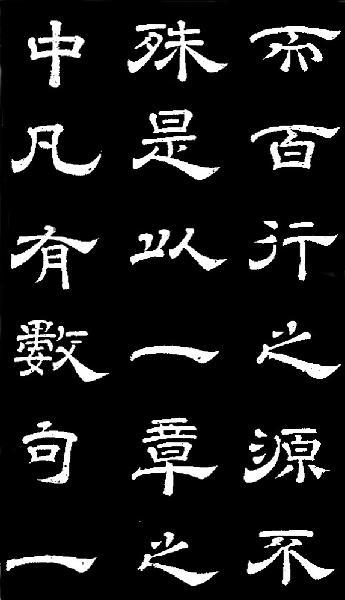 而百行之源不
殊是以一章之
中凡有數句一